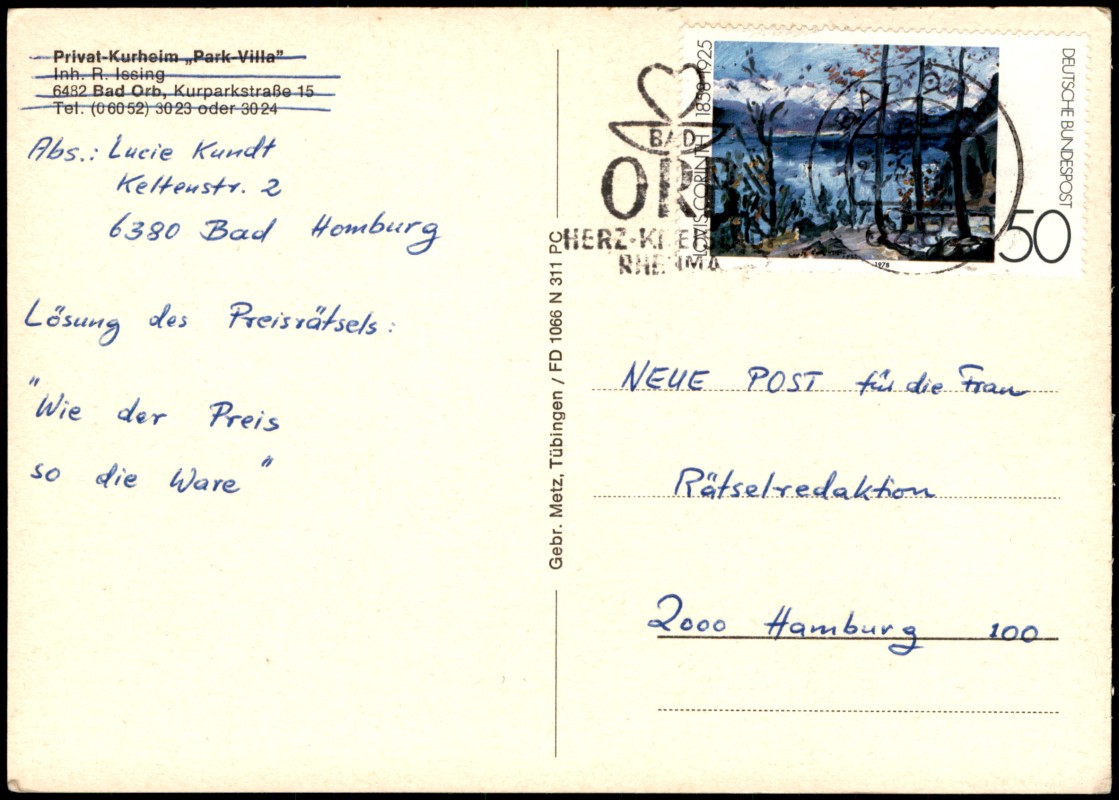 Privat-Kurheim „Park-Villa"
Inh. R. Issing
6482 Bad Orb, Kurparkstraße 15
Tel. (06052) 3023 oder 3024
Abs.: Lucie Kundt
Keltenstr. 2
6380 Bad Homburg
Lösung des Preisrätsels:
"Wie der Preis
so die Ware"
Gebr. Metz, Tübingen / FD 1066 N 311 PC
BAD
ORB
HERZ-
RHEUMA
LOVIS CORINTH 1858-1925
DEUTSCHE BUNDESPOST
50
1978
NEUE POST für die Frau
Rätselredaktion
2000 Hamburg 100